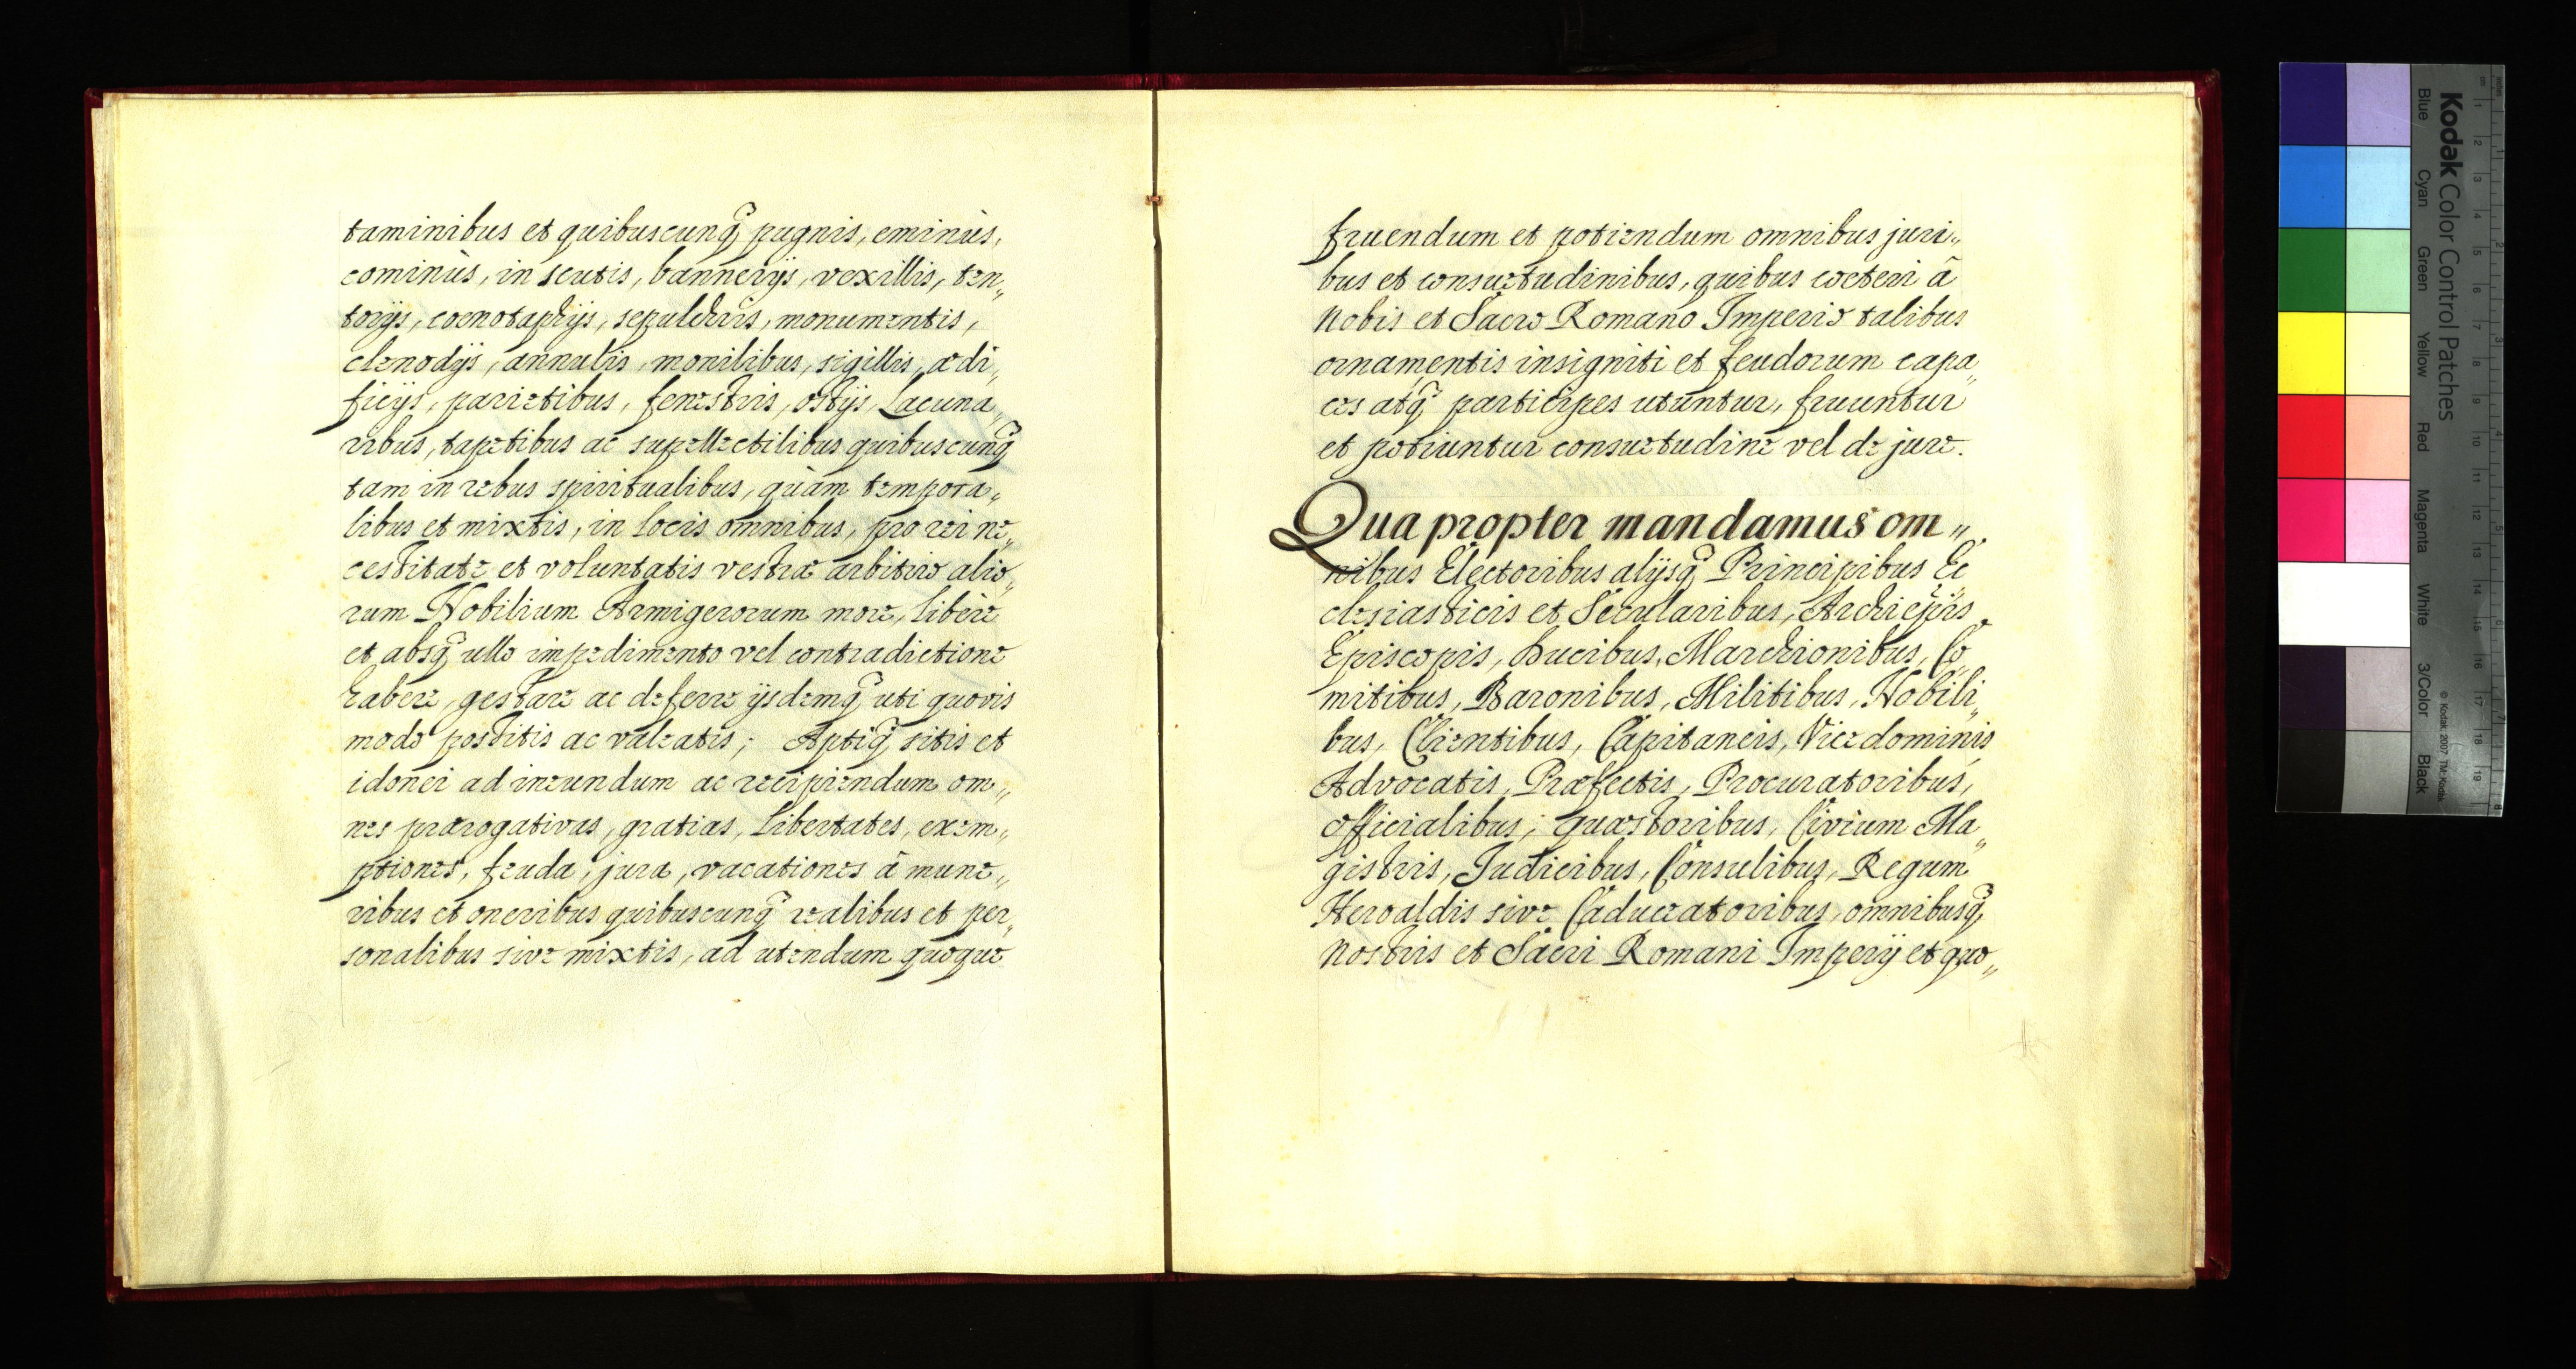 taminibus et quibuscunq̃ pugnis, eminùs,
cominùs, in scutis, bannerijs, vexillis, ten„
torijs, coenotaphijs, sepulchris, monumentis,
clenodijs, annulis, monilibus, sigillis, ædi„
ficijs, parietibus, fenestris, ostijs, Lacuna„
ribus, tapetibus ac supellectilibus quibuscunq̃
tam in rebus spiritualibus, quàm tempora„
libus et mixtis, in locis omnibus, pro rei ne„
cessitate et voluntatis vestræ arbitrio alio„
rum Nobilium Armigerorum more, liberè
et absq̃ ullo impedimento vel contradictione
habere, gestare ac deferre ijsdemq̃ uti quovis
modo possitis ac valeatis; Aptiq̃ sitis et
idonei ad ineundum ac recipiendum om„
nes prærogativas, gratias, Libertates, exem„
ptiones, feuda, jura, vacationes â mune„
ribus et oneribus quibuscunq̃ realibus et per„
sonalibus sive mixtis, ad utendum quoque
fruendum et potiendum omnibus juri„
bus et consuetudinibus, quibus coeteri â
Nobis et Sacro Romano Imperio talibus
ornamentis insigniti et feudorum capa„
ces atq̃ participes utuntur, fruuntur
et potiuntur consuetudine vel de jure.
Quapropter mandamus om„
nibus Electoribus alijsq̃ Principibus Ec„
clesiasticis et Secularibus, Archiepis„
Episcopis, Ducibus, Marchionibus, Co„
mitibus, Baronibus, Militibus, Nobili„
bus, Clientibus, Capitaneis, Vicedominis,
Advocatis, Præfectis, Procuratoribus,
officialibus; Quæstoribus, Civium Ma„
gistris, Judicibus, Consulibus, Regum
Heroaldis sive Caduceatoribus, omnibusq̃
Nostris et Sacri Romani Imperij et quo„
Kodak Color Control Patches
Blue
Cyan
Green
Yellow
Red
Magenta
White
3/Color
Black
© Kodak 2007 TM:Kodak